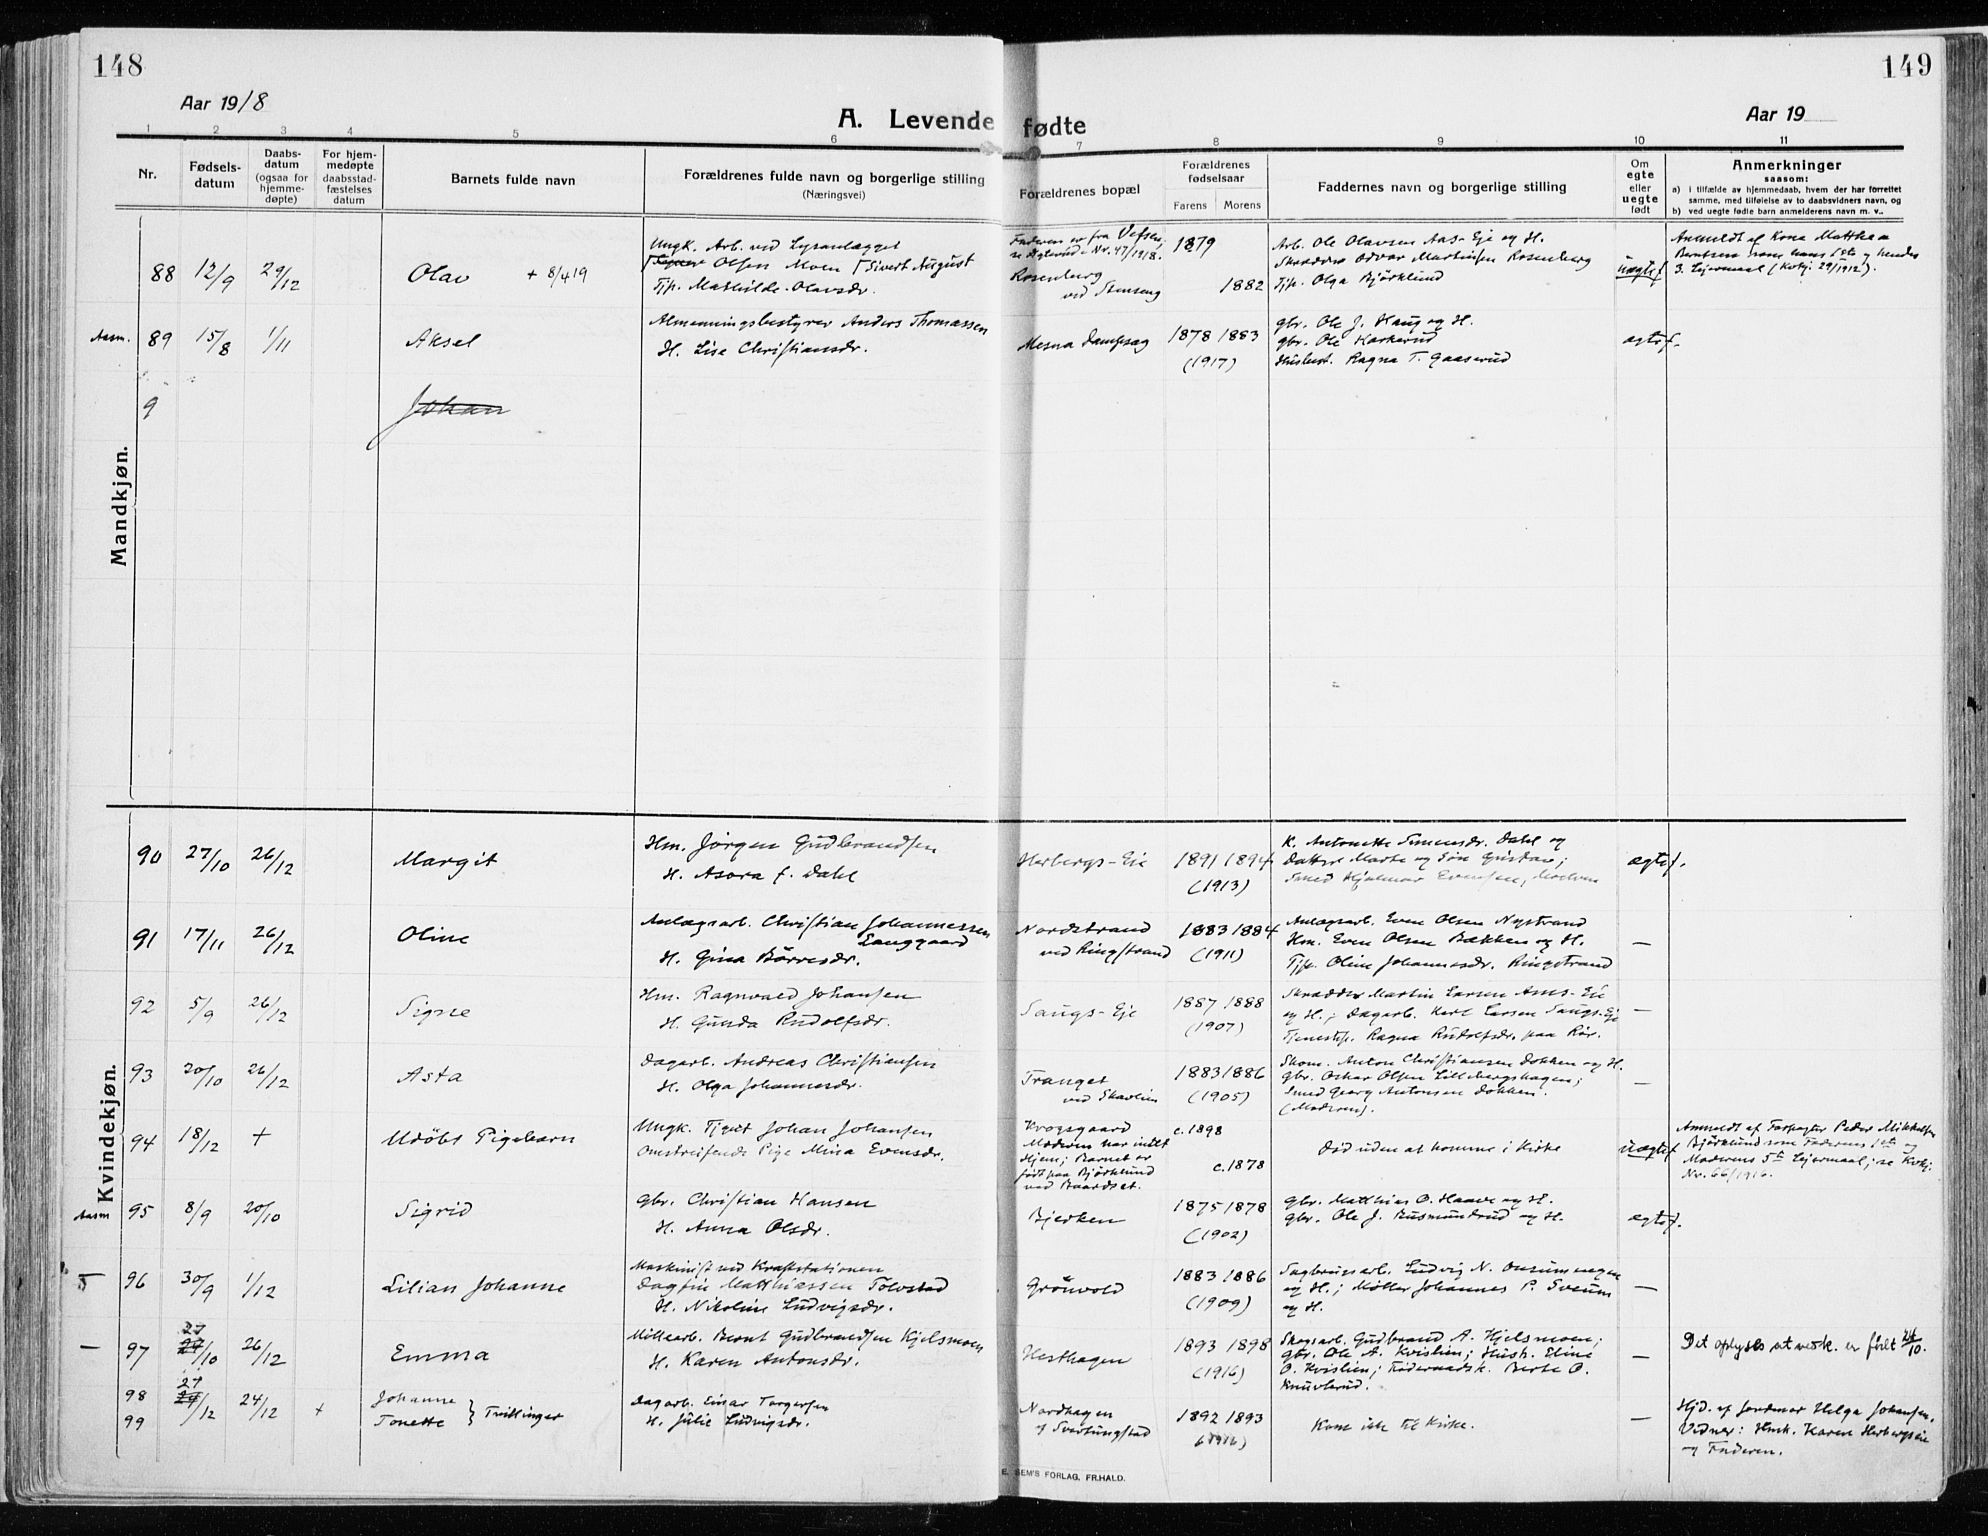 148
149
Aar 1918
A. Levende fødte
Aar 19
1 2 3 4 5 6 7 8 9 10 11
Nr.
Fødsels-
datum
Daabs-
datum
(ogsaa for
hjemme-
døpte)
For hjem-
medøpte
daabsstad-
fæstelses
datum
Barnets fulde navn
Forældrenes fulde navn og borgerlige stilling
(Næringsvei)
Forældrenes bopæl
Forældrenes
fødselsaar
Farens Morens
Faddernes navn og borgerlige stilling
Om
egte
eller
uegte
født
Anmerkninger
saasom:
a) i tilfælde av hjemmedaab, hvem der har forrettet
samme, med tilføielse av to daabsvidners navn, og
b) ved uegte fødte barn anmelderens navn m. v..
Mandkjøn.
88 12/9 29/12 Olav + 8/4 19
Ungk. Arb. ved Lysanlægget
Olsen Moen Sivert August
Tjp. Mathilde Olavsdr.
Faderen er fra Vefsen,
Nr. 47/1918.
Rosenberg
ved Stenseng
1879
1882
Arb. Ole Olavsen Aas-Eje og H.
Skrædder Odvar Martinsen Rosenberg
Tjp. Olga Bjørklund
uægtef.
Anmeldt af Kona Matthea
Berntsen som hans 1ste og hendes
3. Lejermaal (Kvkj. 29/1912).
Aasm. 89 15/8 1/11 Aksel
Almenningsbestyrer Anders Thomassen
H. Lise Christiansdr.
Mesna Dampsag
1878 1883
(1917)
gbr. Ole J. Haug og H.
gbr. Ole Karkerud
Husbest. Ragna T. Gaaserud
ægtef.
9 Johan
Kvindekjøn.
90 27/10 26/12 Margit
Hm. Jørgen Gudbrandsen
H. Asora f. Dahl
Herbergs-Eje
1891 1894
(1913)
K. Antonette Simensdr. Dahl og
Datter Marte og Søn Gustav;
Smed Hjalmar Evensen, Moelven
ægtef.
91 17/11 26/12 Oline
Anlægsarb. Christian Johannessen
Langgaard
H. Gina Børresdr.
Nordstrand
ved Ringstrand
1883 1884
(1911)
Anlægsarb. Even Olsen Nystrand
Hm. Even Olsen Bækken og H.
Tjp. Oline Johannesdr. Ringstrand
—
92 5/9 26/12 Signe
Hm. Ragnvald Johansen
H. Gunda Rudolfsdr.
Saugs-Eje
1887 1888
(1907)
Skrædder Martin Larsen Ams-Eie
og H.; Dagarb. Karl Larsen Saugs-Eje
Tjenestep. Ragna Rudolfsdr. paa Rør.
—
93 20/10 26/12 Asta
Dagarb. Andreas Christiansen
H. Olga Johannesdr.
Tranget
ved Skavlien
1883 1886
(1905)
Skom. Anton Christiansen Dokken og H.
gbr. Oskar Olsen Lillebergshagen;
Smed Georg Antonsen Dokken.
(Moderen).
—
94 18/12 + Udøbt Pigebarn
Ungk. Tjgut Johan Johansen
Omstreifende Pige Mina Evensdr.
Krogsgaard
Moderen har intet
Hjem; Barnet er
født paa Bjørklund
ved Baardset.
c. 1898
c. 1878
Død uden at komme i Kirke
uægtef
Anmeldt af Forpagter Peder Mikkelsen
Bjørklund som Faderens 1ste og
Moderens 5te Lejermaal; se Kvkj.
Nr. 66/1916.
Aasm 95 8/9 20/10 Sigrid
gbr. Christian Hansen
H. Anna Olsdr.
Bjerken
1875 1878
(1902)
gbr. Matthias O. Haave og H.
gbr. Ole J. Rusmundrud og H.
ægtef.
96 30/9 1/12 Lilian Johanne
Maskinist ved Kraftstationen
Dagfin Matthiassen Tolvstad
H. Nikoline Ludvigsdr.
Grønvold
1883 1886
(1909)
Sagbrugsarb. Ludvig N. Onsumhagen
og H.; Møller Johannes P. Sveum
og H.
—
— 97 27 29/10 26/12 Emma
Møllearb. Bernt Gudbrandsen Kjelsmoen
H. Karen Antonsdr.
Hesthagen
1893 1898
(1916)
Skogsarb. Gudbrand A. Hjelsmoen;
gbr. Ole A. Kvislien; Hush. Eline
O. Kvislien; Føderaadsk. Berte O.
Knuvlerud.
—
Det oplyses at vedk. er født 24/10.
98
99
27 29/12 24/12 +
Johanne
Tonette } Tvillinger
Dagarb. Einar Torgersen
H. Julie Ludvigsdr.
Nordhagen
af Sveisungstad
1892 1893
(1916)
Kom ikke til Kirke.
—
Hjd. af Jordmor Helga Johansen.
Vidner: Hmk. Karen Herbergseie
og Faderen.
E. SEM'S FORLAG, FR.HALD.